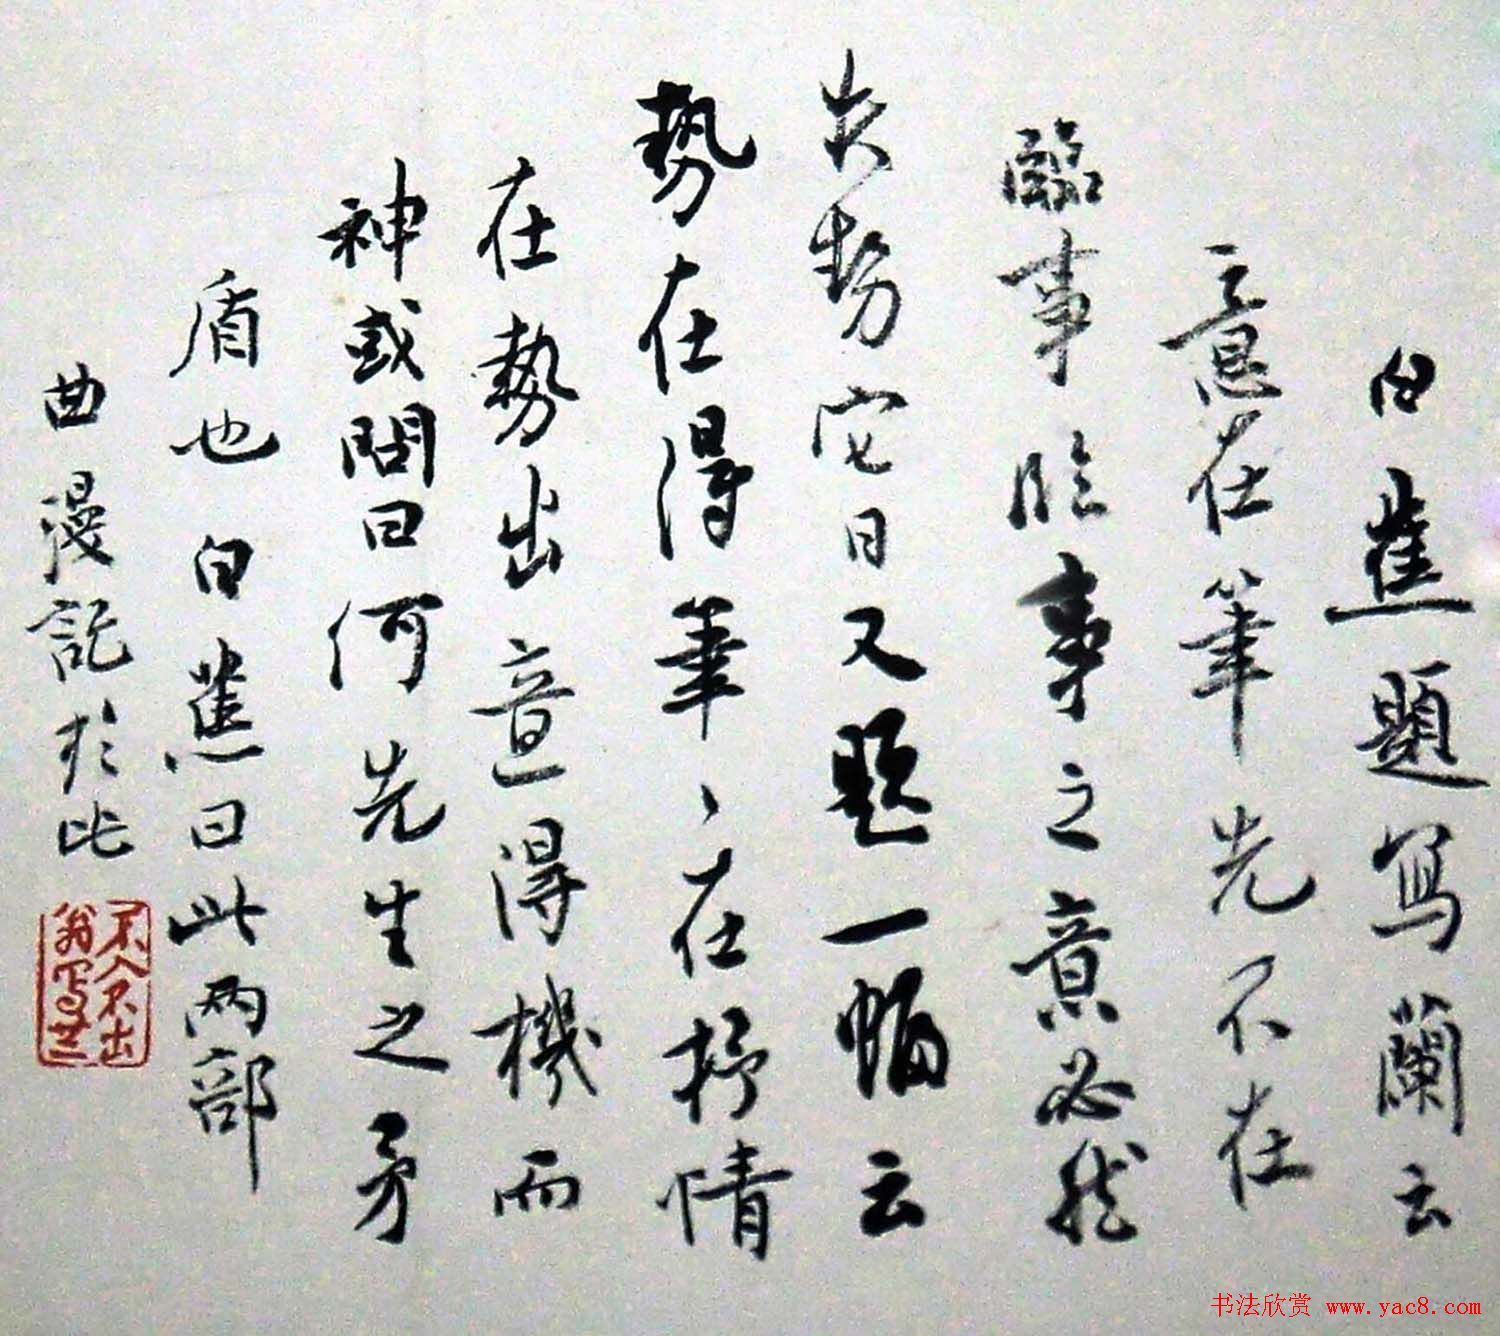 白蕉題寫蘭云
意在筆先不在
臨事臨事之意必然
失勢它日又題一幅云
勢在得筆〻在抒情
在勢出意得機而
神或問曰何先生之矛
盾也白蕉曰此兩部
曲漫記於此
不入不出
翁寫蘭
书法欣赏 www.yac8.com